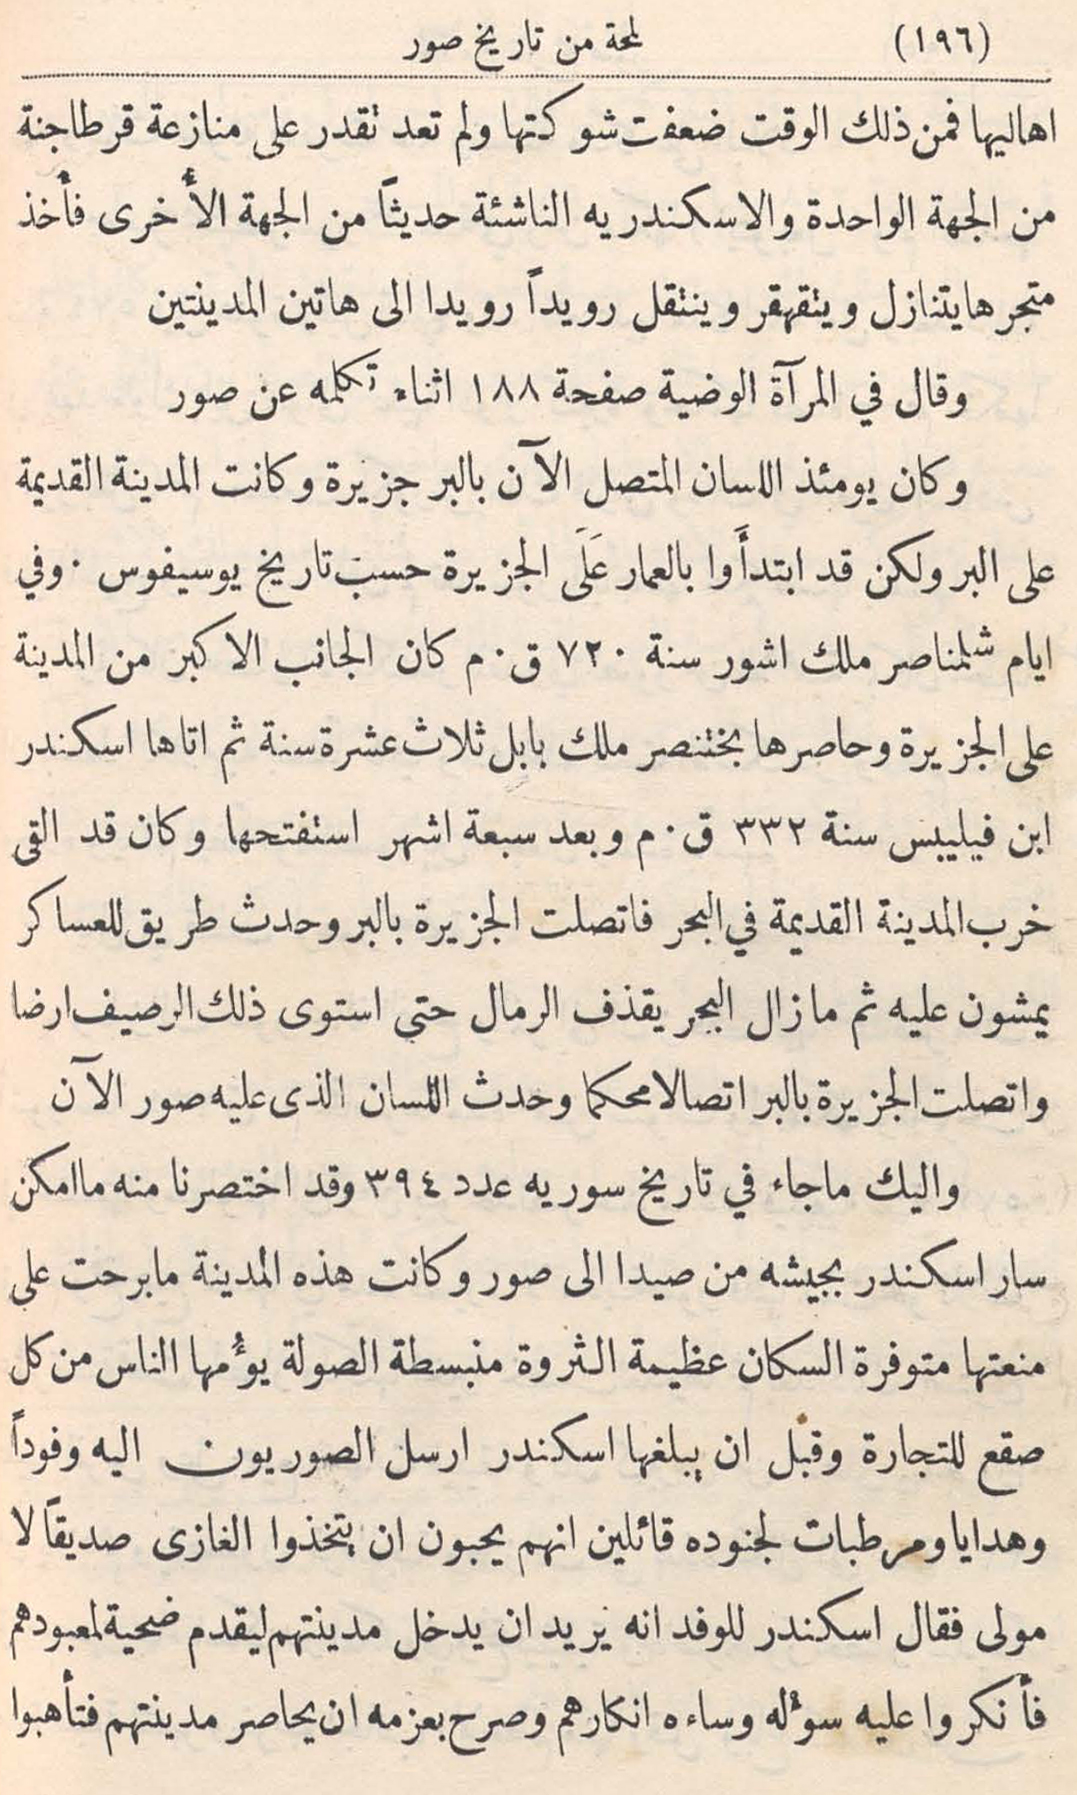 (١٩٦) لمحة من تاريخ صور
اهاليها فمن ذلك الوقت ضعفت شوكتها ولم تعد تقدر على منازعة قرطاجنة
من الجهة الواحدة والاسكندريه الناشئة حديثاً من الجهة الأخرى فأخذ
متجرها يتنازل ويتقهقر وينتقل رويداً رويدا الى هاتين المدينتين
وقال في المرآة الوضية صفحة ١٨٨ اثناء تكلمه عن صور
وكان يومئذ اللسان المتصل الآن بالبر جزيرة وكانت المدينة القديمة
على البر ولكن قد ابتدأوا بالعمار عَلَى الجزيرة حسب تاريخ يوسيفوس ٠ وفي
ايام شلمناصر ملك اشور سنة ٧٢٠ ق ٠ م كان الجانب الاكبر من المدينة
على الجزيرة وحاصرها بختنصر ملك بابل ثلاث عشرة سنة ثم اتاها اسكندر
ابن فيليبس سنة ٣٣٢ ق ٠ م وبعد سبعة اشهر استفتحها وكان قد القى
خرب المدينة القديمة في البحر فاتصلت الجزيرة بالبر وحدث طريق للعساكر
يمشون عليه ثم مازال البحر يقذف الرمال حتى استوى ذلك الرصيف ارضا
واتصلت الجزيرة بالبر اتصالا محكما وحدث اللسان الذى عليه صور الآن
واليك ماجاء في تاريخ سوريه عدد ٣٩٤ وقد اختصرنا منه ما امكن
سار اسكندر بجيشه من صيدا الى صور وكانت هذه المدينة مابرحت على
منعتها متوفرة السكان عظيمة الثروة منبسطة الصولة يؤمها الناس من كل
صقع للتجارة وقبل ان يبلغها اسكندر ارسل الصوريون اليه وفوداً
وهدايا ومرطبات لجنوده قائلين انهم يحبون ان يتخذوا الغازى صديقاً لا
مولى فقال اسكندر للوفد انه يريد ان يدخل مدينتهم ليقدم ضحية لمعبودهم
فأنكروا عليه سؤله وساءه انكارهم وصرح بعزمه ان يحاصر مدينتهم فتأهبوا